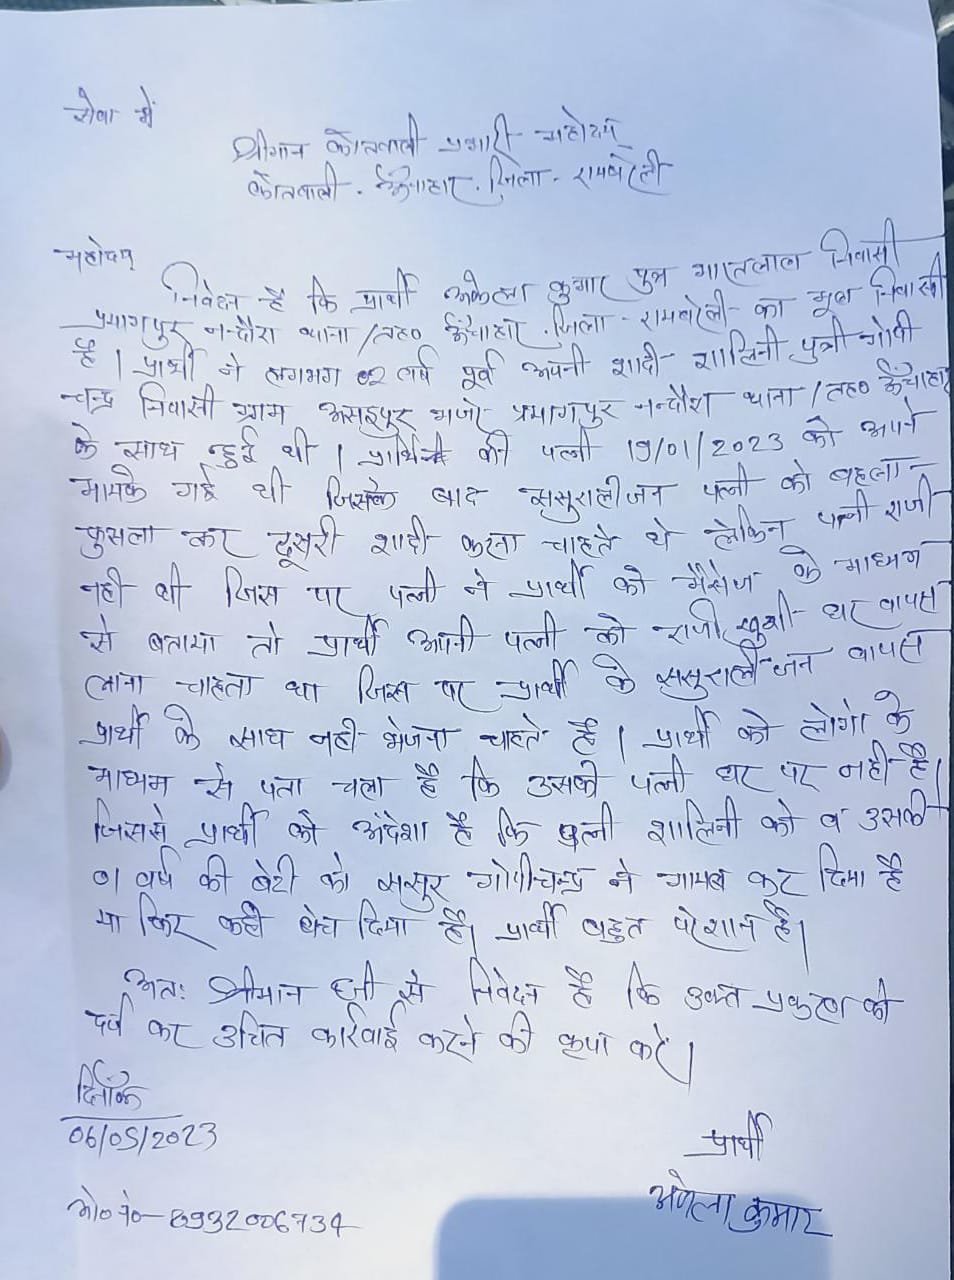 सेवा में
श्रीमान कोतवाली प्रभारी महोदय
कोतवाली - ऊँचाहार, जिला - रायबरेली
महोदय
निवेदन है कि प्रार्थी अकेला कुमार पुत्र भारतलाल निवासी
प्रयागपुर नन्दौरा थाना/तह० ऊँचाहार जिला - रायबरेली का मूल निवासी
है। प्रार्थी ने लगभग 02 वर्ष पूर्व अपनी शादी शालिनी पुत्री गोपी
चन्द्र निवासी ग्राम प्रयागपुर नन्दौरा थाना/तह० ऊँचाहार
के साथ हुई थी। की पत्नी 19/01/2023 को अपने
मायके गई थी जिसके बाद ससुरालीजन पत्नी को बहला-
फुसला कर दूसरी शादी करना चाहते थे लेकिन पत्नी राजी
नही थी जिस पर पत्नी ने प्रार्थी को मैसेज के माध्यम
से बताया तो प्रार्थी अपनी पत्नी को राजी खुशी घर वापस
लाना चाहता था जिस पर प्रार्थी के ससुराली-जन वापस
प्रार्थी के साथ नही भेजना चाहते हैं। प्रार्थी को लोगो के
माध्यम से पता चला है कि उसकी पत्नी घर पर नही है।
जिससे प्रार्थी को अंदेशा है कि पत्नी शालिनी को व उसकी
01 वर्ष की बेटी को ससुर गोपीचन्द्र ने गायब कर दिया है
या फिर कही बेच दिया है। प्रार्थी बहुत परेशान है।
अतः श्रीमान जी से निवेदन है कि उक्त प्रकरण को
दर्ज कर उचित कार्रवाई करने की कृपा करें।
दिनाँक
06/05/2023
प्रार्थी
अकेला कुमार
मो० नं०- 8932006734